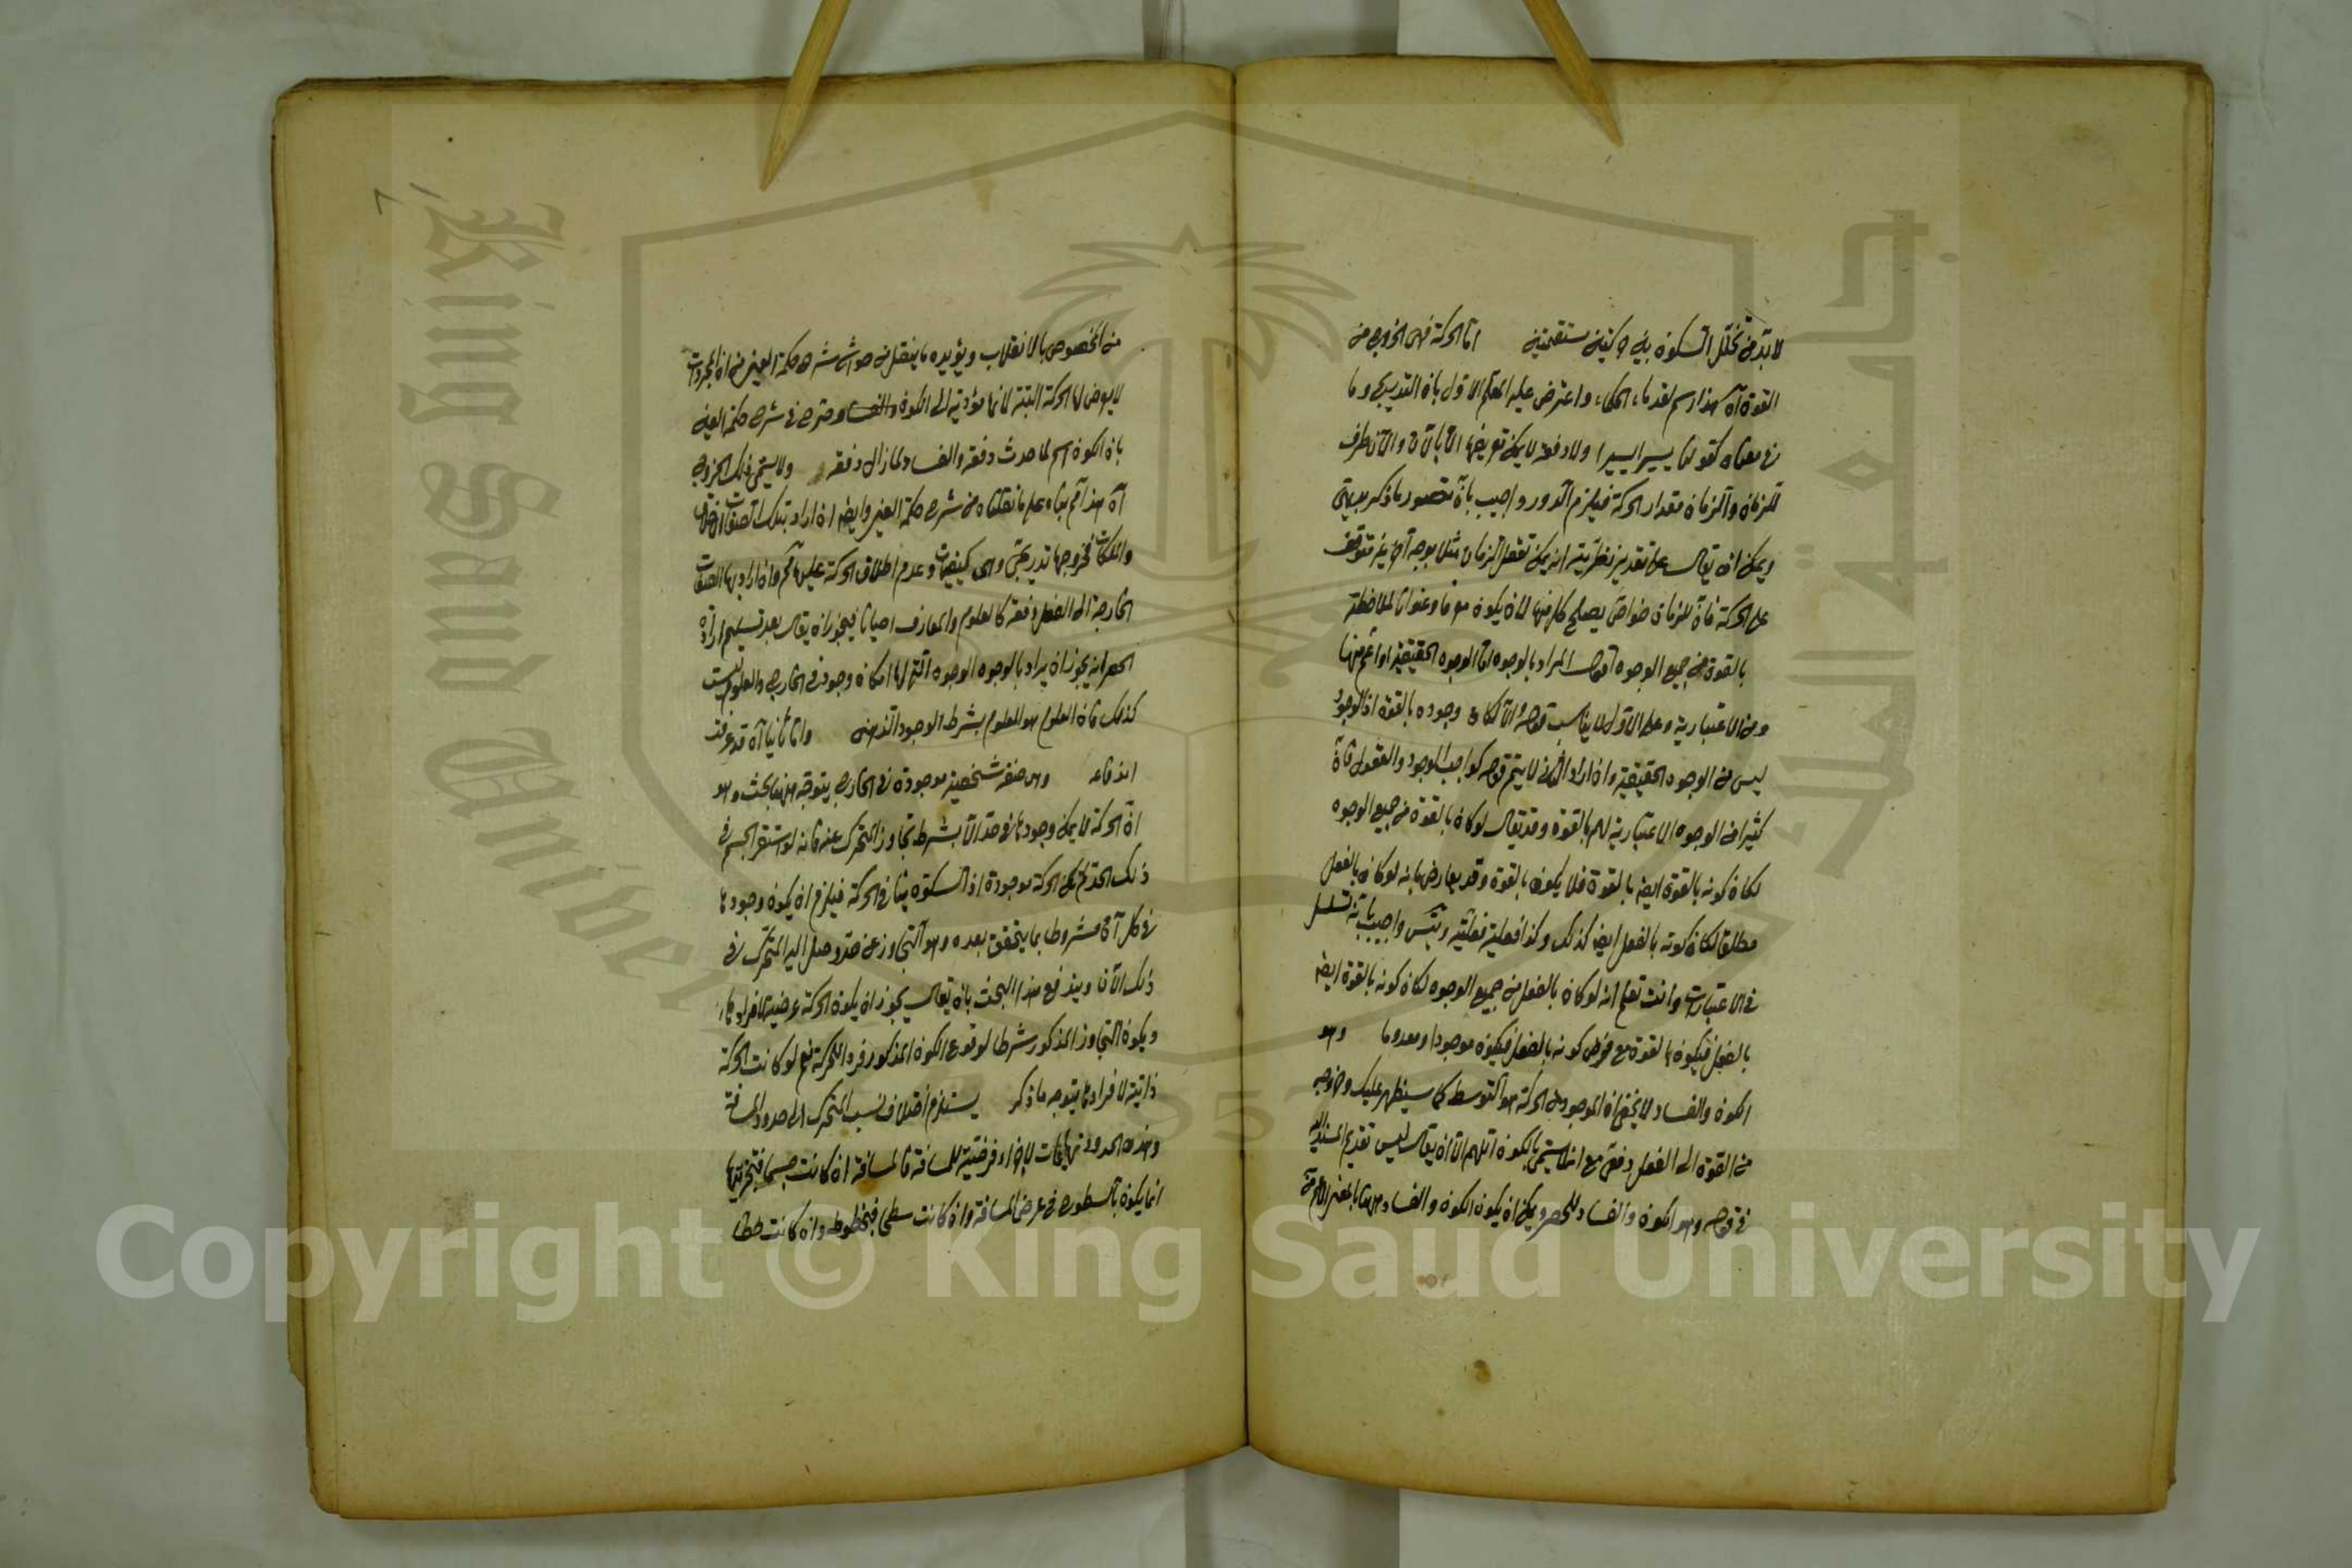 لا بد من تخلل السكون بين حركتين مستقيمتين اما الحركة فهى الخروج من
القوة آه هذا رسم لقدماء الحكماء واعترض عليه المعلم الاول بان التدريج وما
فى معناه كقولنا يسيرا يسيرا ولا دفعة لا يمكن تعريفها الا بالآن والآن طرف
للزمان والزمان مقدار الحركة فيلزم الدور واجيب بان تصور ما ذكر بديهى
ويمكن ان يقال على تقدير نظريته انه يمكن تعقل الزمان مثلا بوجه آخر غير متوقف
على الحركة فان للزمان خواص يصلح كل منها لان يكون معرفا وعنوانا لملاحظته
بالقوة من جميع الوجوه المراد بالوجوه اما الوجوه الحقيقية او اعم منها
ومن الاعتبارية وعلى الاول لا يناسب قوله والا لكان وجوده بالقوة اذ الوجود
ليس من الوجوه الحقيقية وان اراد الثانى لا يتم قوله كواجب الوجود والعقول فان
كثيرا من الوجوه الاعتبارية لهم بالقوة وقد يقال لو كان بالقوة من جميع الوجوه
لكان كونه بالقوة ايضا بالقوة فلا يكون بالقوة وقد يعارض بانه لو كان بالفعل
مطلقا لكان كونه بالفعل ايضا كذلك وكذا فعلية فعليته ويتس واجيب بانه تسلسل
فى الاعتباريات وانت تعلم انه لو كان بالفعل من جميع الوجوه لكان كونه بالقوة ايضا
بالفعل فيكون بالقوة مع فرض كونه بالفعل فيكون موجودا ومعدوما وهو
الكون والفساد لا يخفى ان الموجود من الحركة هو التوسط كما سيظهر عليك وخروجه
من القوة الى الفعل دفعى مع انه لا يسمى بالكون اللهم الا ان يقال ليس تقديم المسند اليه
فى قوله وهو الكون والفساد للحصر ويمكن ان يكون الكون والفساد ههنا بالمعنى الاعم
من المخصوص بالانقلاب ويؤيده ما ينقل من حواشى شرح حكمة العين من ان المجردات
لا يعرض لها الحركة البتة لانها مؤدية الى الكون والفساد وصرح فى شرح حكمة العين
بان الكون اسم لما حدث دفعة والفساد لما زال دفعة ولا يسمى ذلك الخروج
آه هذا بناء على ما نقلناه من شرح حكمة العين وايضا ان اراد بتلك الصفات
والملكات فخروجها تدريجى وهى كيفيات وعدم اطلاق الحركة عليها وان اراد بها الصفات
الخارجة الى الفعل دفعة كالعلوم والمعارف احيانا فيجوز ان يقال بعد تسليم ارادة
الحصر انه يجوز ان يراد بالوجوه الوجوه التى لها امكان وجود فى الخارج والعلوم ليست
كذلك فان العلوم هو المعلوم بشرط الوجود الذهنى واما ثانيا آه قد عرفت
اندفاعه وهى صفة شخصية موجودة فى الخارج يتوجه ههنا بحث وهو
ان الحركة لا يمكن وجودها فى حد الا بشرط تجاوز المتحرك عنه فانه لو استقر الجسم فى
ذلك الحد لم يكن الحركة موجودة اذ السكون ينافى الحركة فيلزم ان يكون وجودها
فى كل آن مشروطا بما يتحقق بعده وهو التجاوز عن حد وصل اليه المتحرك فى
ذلك الآن ويندفع هذا البحث بان يقال يجوز ان يكون الحركة عرضية لافرادها
ويكون التجاوز المذكور شرطا لوقوع الكون المذكور فردا للحركة نعم لو كانت الحركة
ذاتية لافرادها يتوجه ما ذكر يستلزم اختلاف نسب المتحرك الى حدود المسافة
وهذه الحدود نهايات لاجزاء فرضية للمسافة فالمسافة ان كانت جسما فتجزيتها
انما يكون بالسطوح فى عرض المسافة وان كانت سطحا فبخطوط وان كانت خطا
Copyright © King Saud University
King Saud University